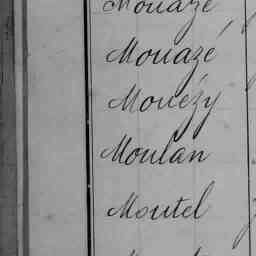 Mouazé
Mouazé
Mouézy
Moulan
Moutel